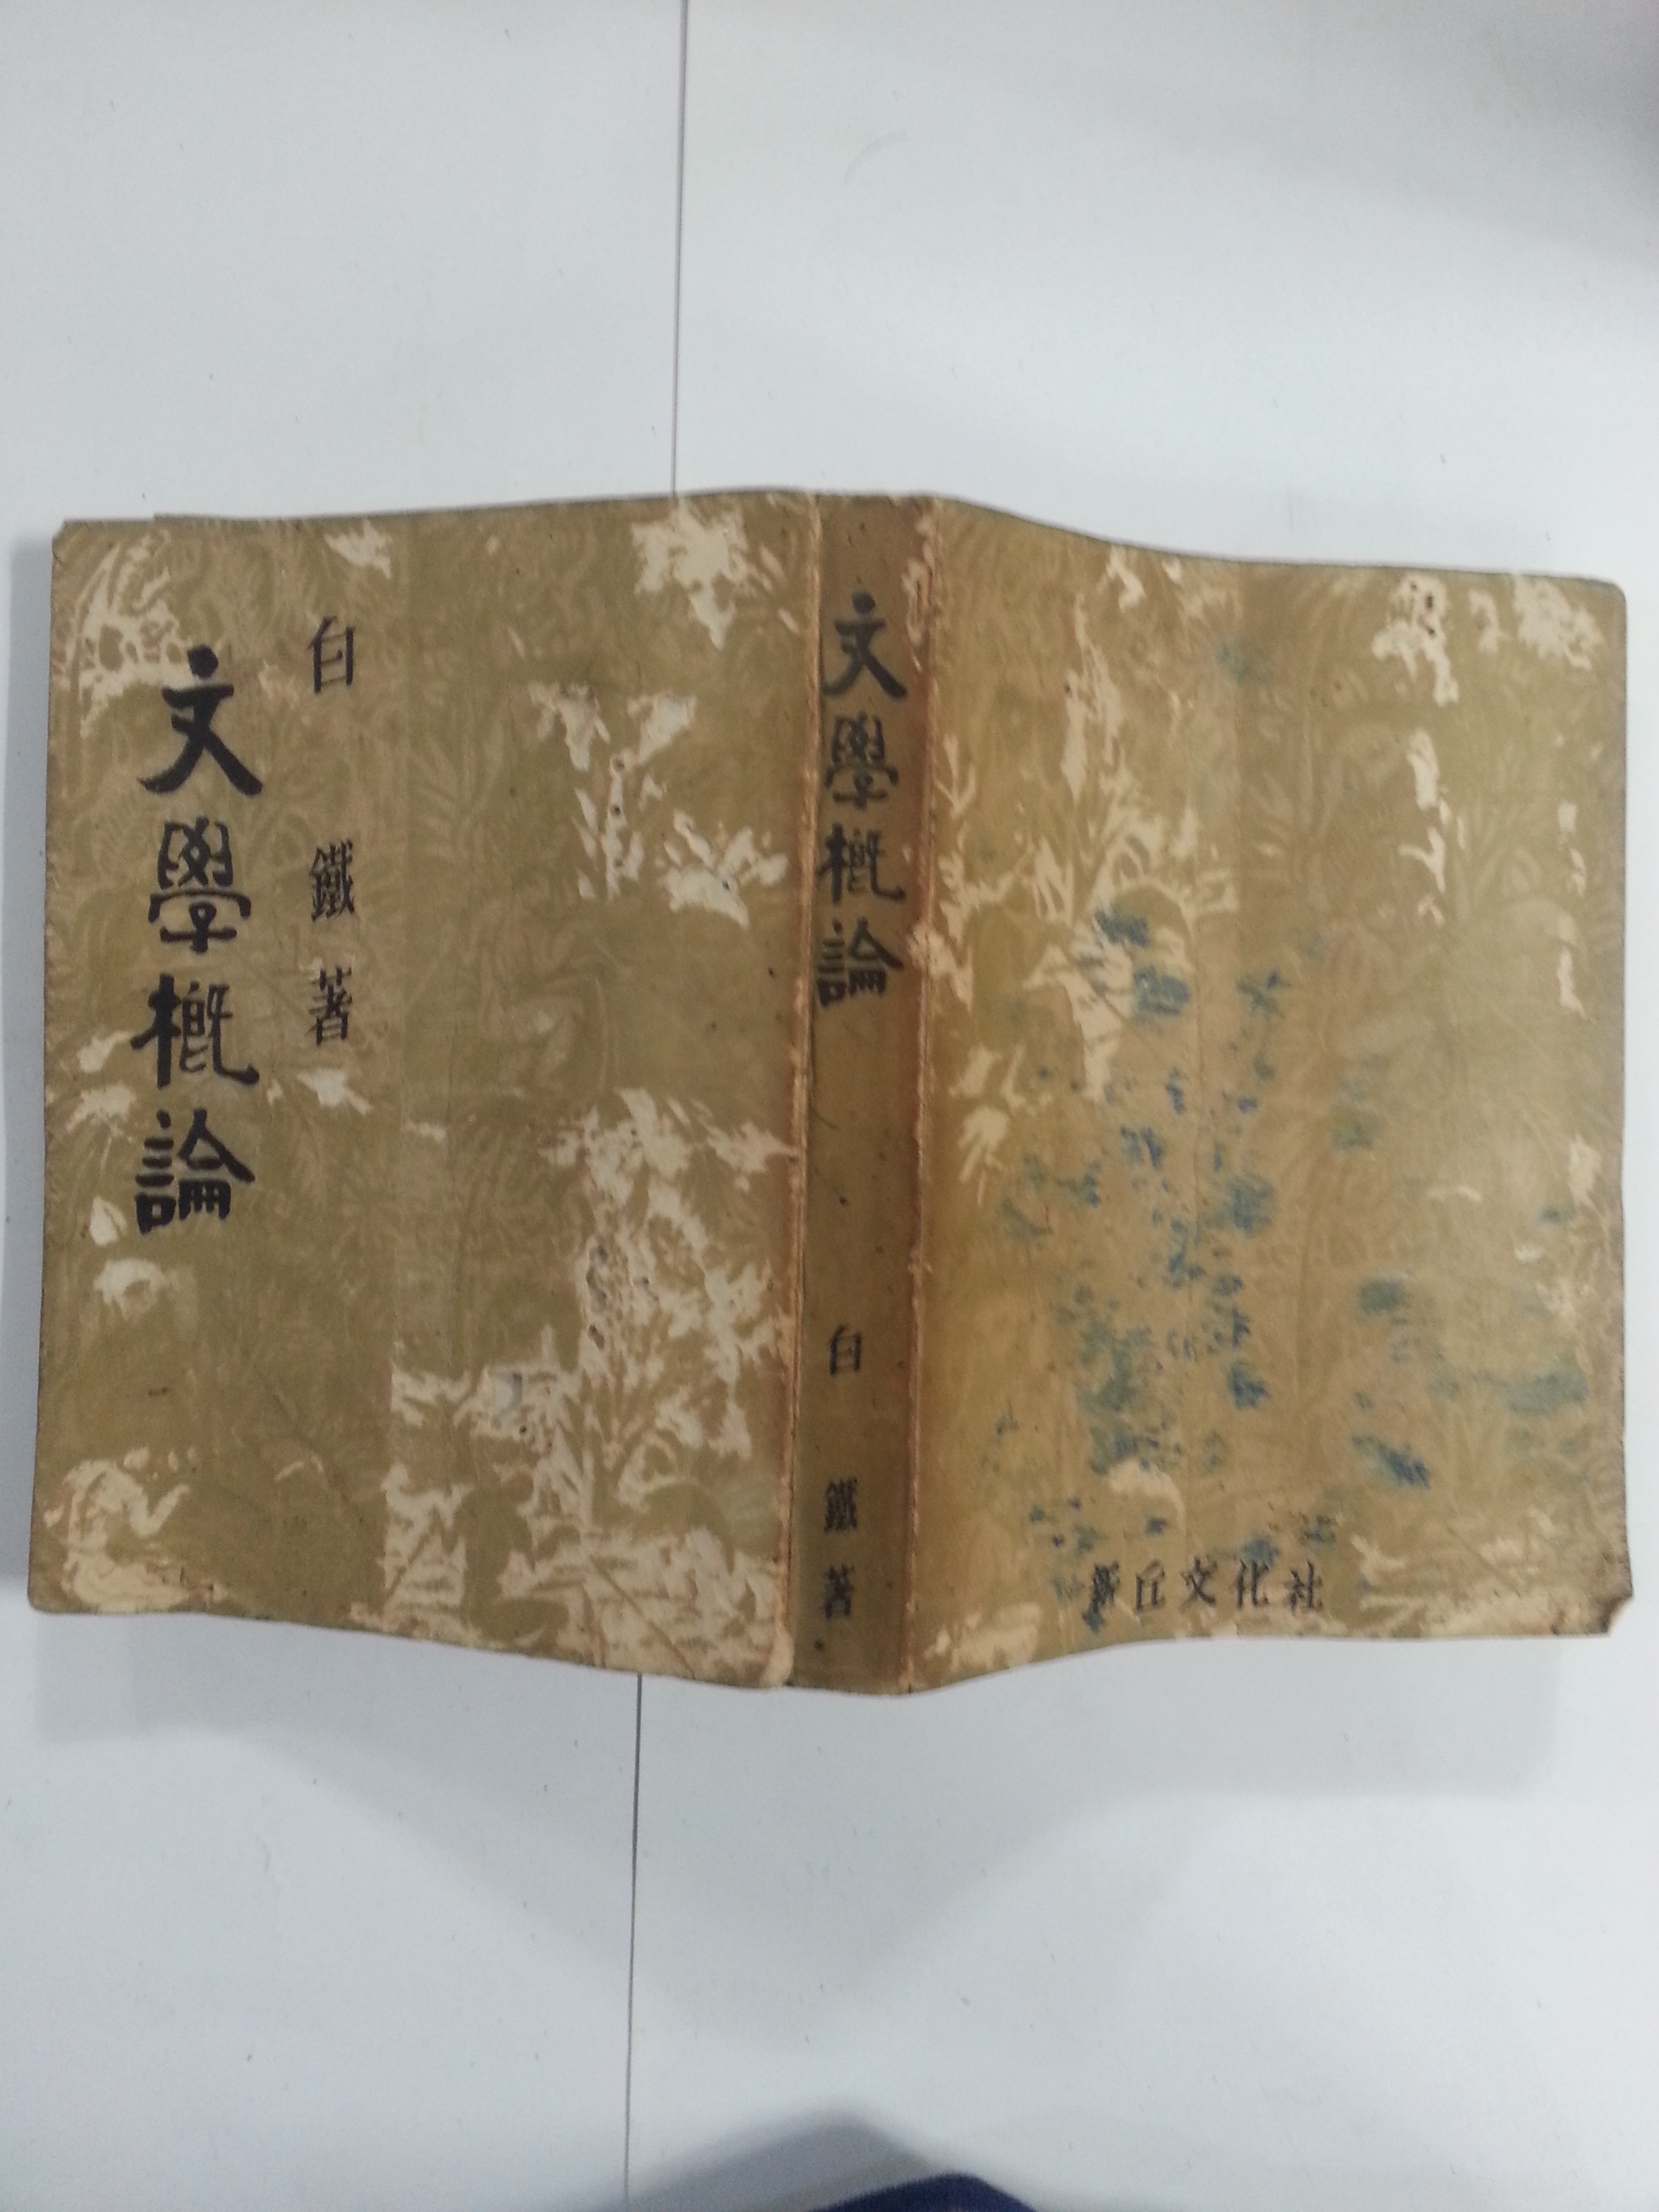 文學槪論
白鐵著
文學槪論
白鐵著
新丘文化社